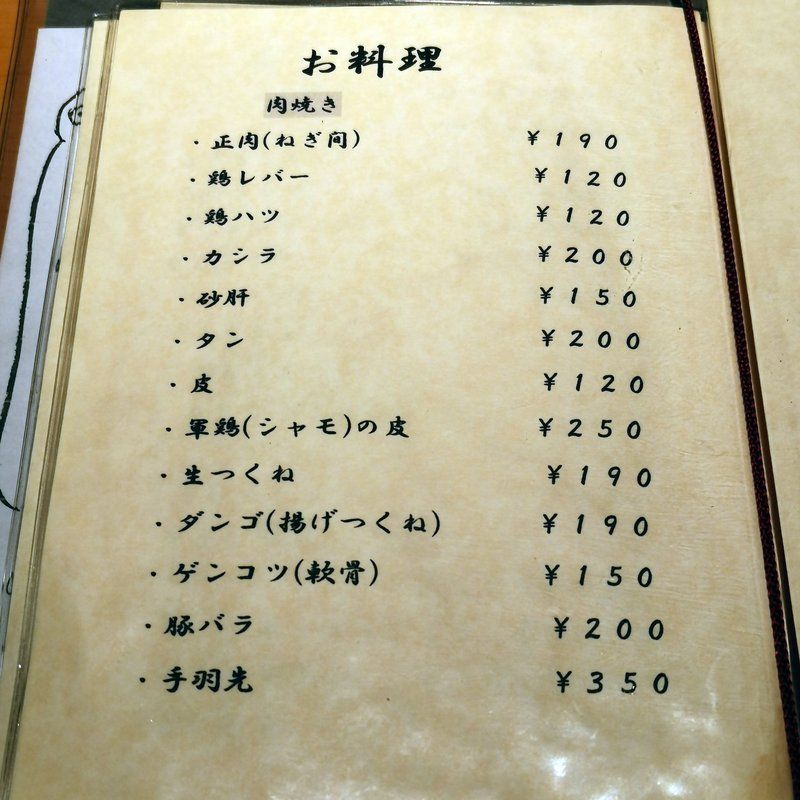 お料理
肉焼き
・正肉(ねぎ間) ￥190
・鶏レバー ￥120
・鶏ハツ ￥120
・カシラ ￥200
・砂肝 ￥150
・タン ￥200
・皮 ￥120
・軍鶏(シャモ)の皮 ￥250
・生つくね ￥190
・ダンゴ(揚げつくね) ￥190
・ゲンコツ(軟骨) ￥150
・豚バラ ￥200
・手羽先 ￥350